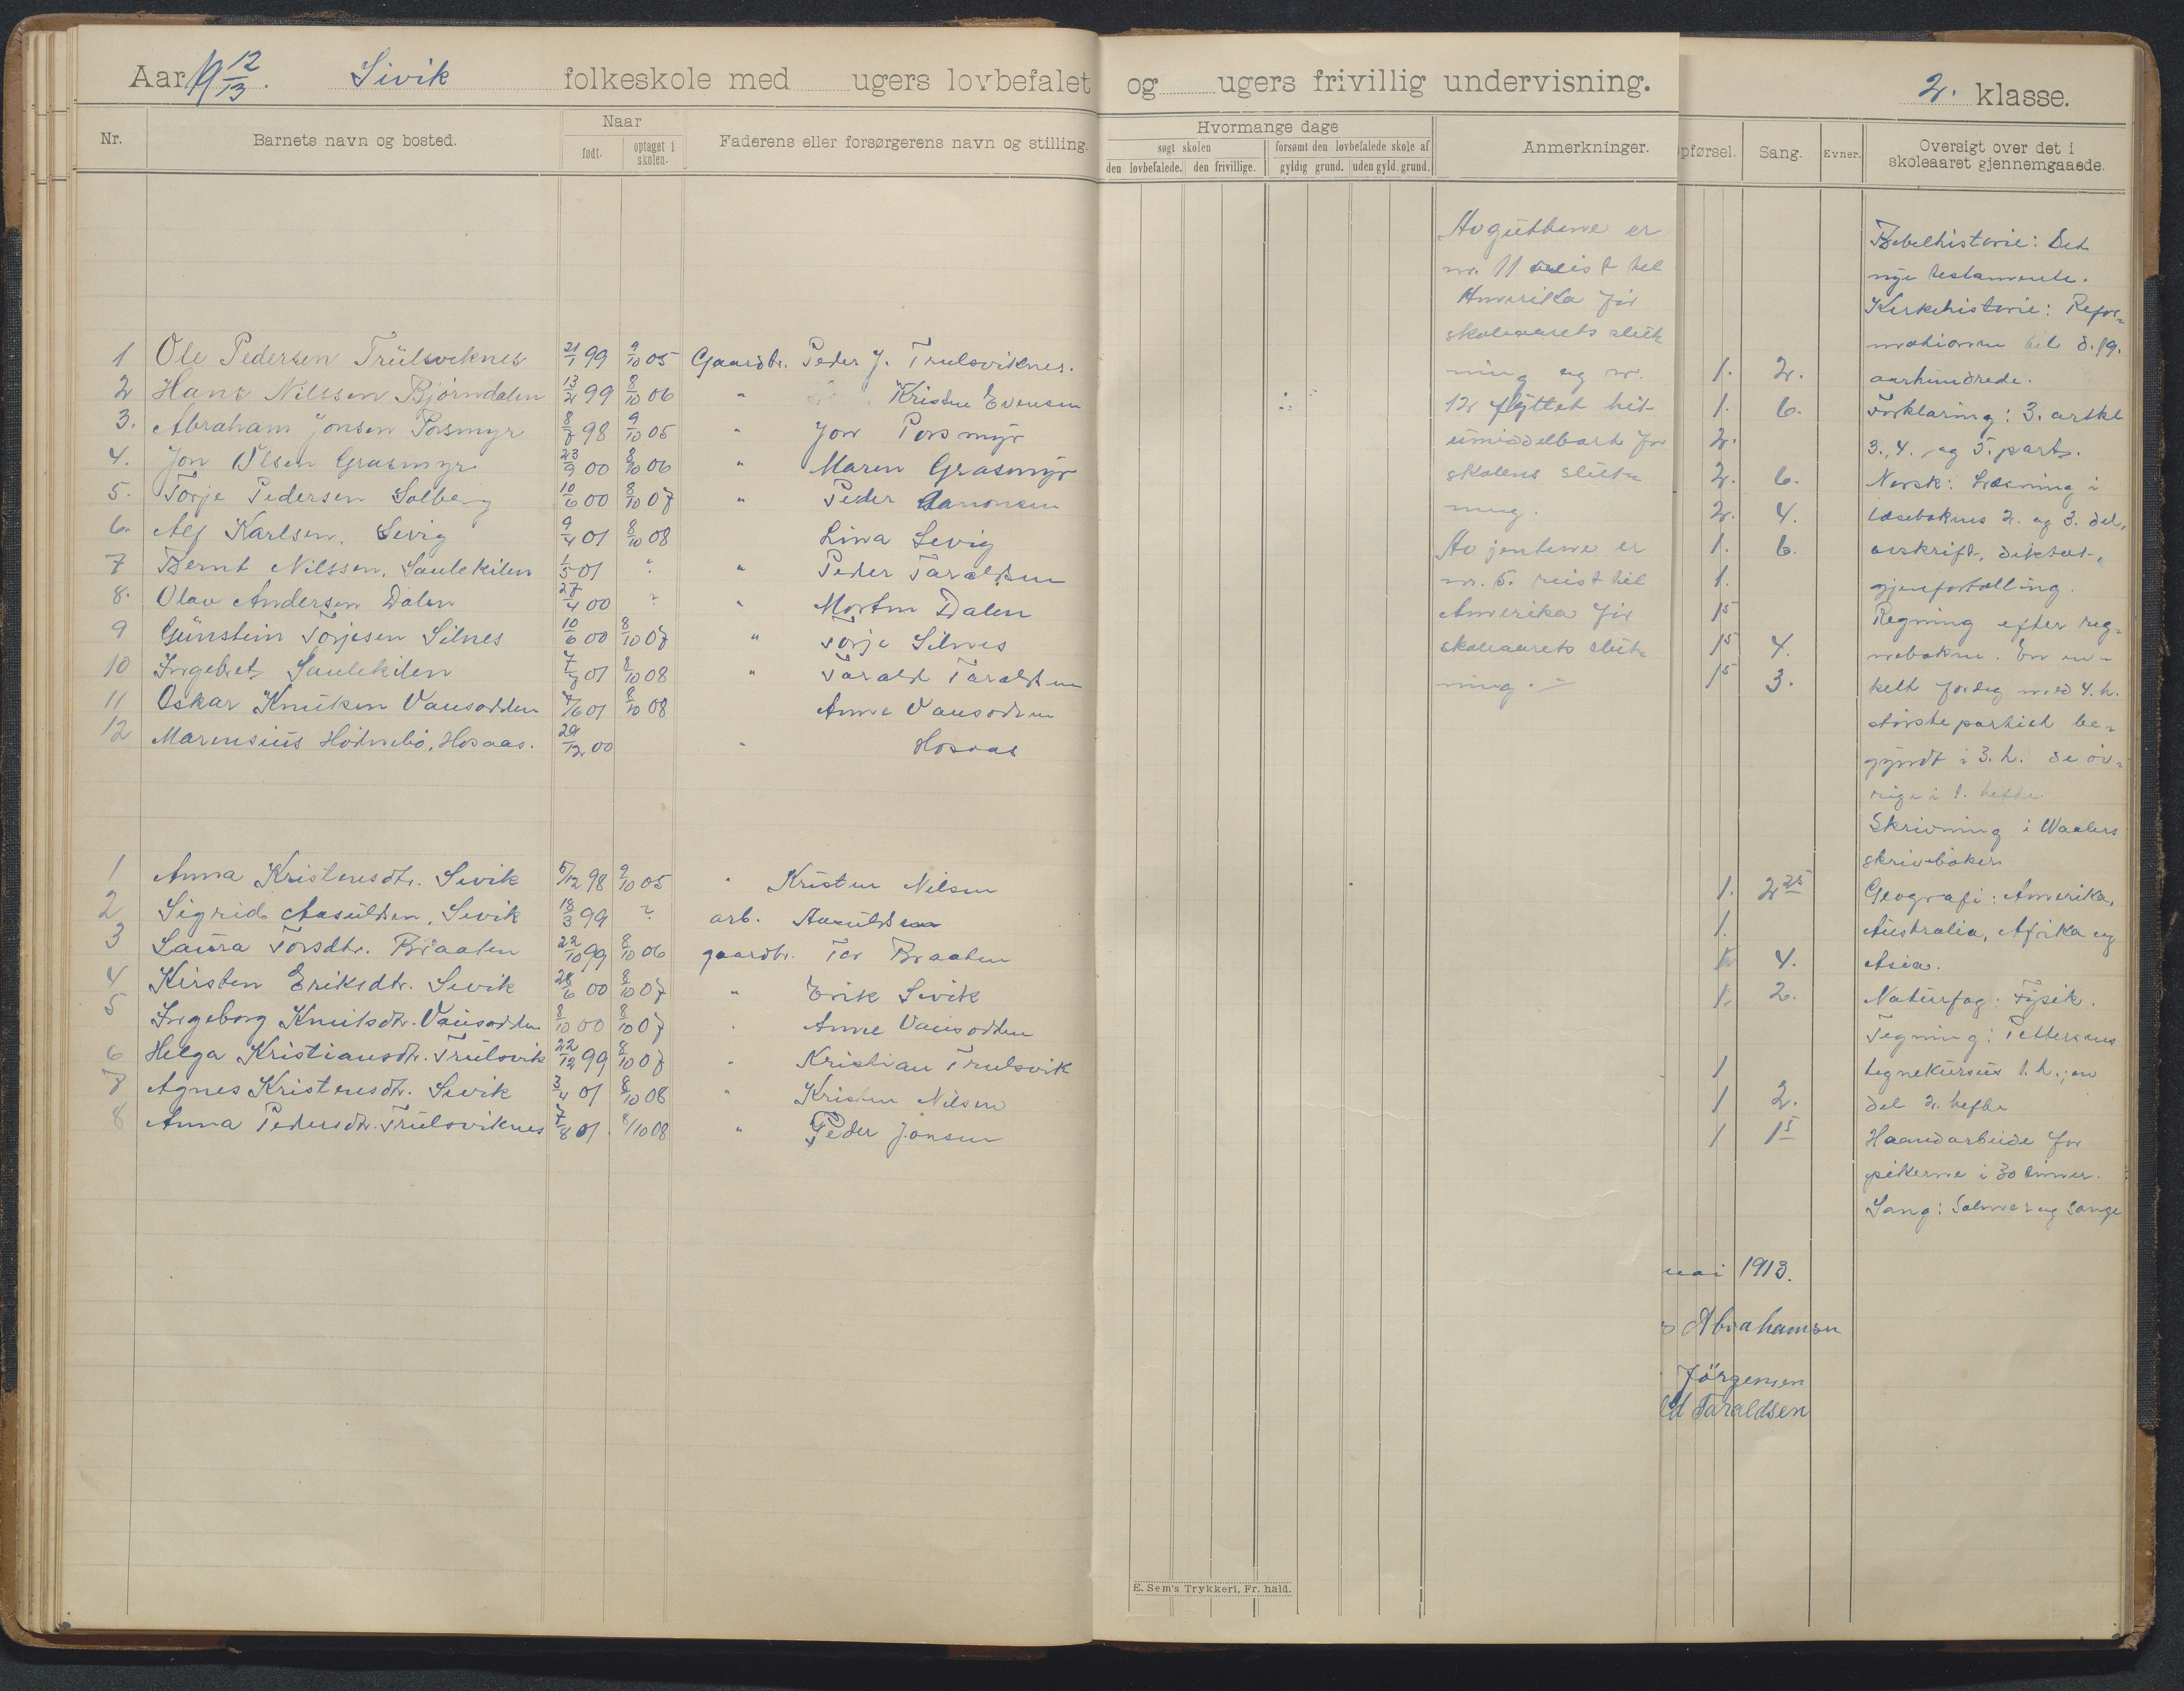 Aar 19 12/13. Sivik folkeskole med ugers lovbefalet og ugers frivillig undervisning.
2. klasse.
Nr. Barnets navn og bosted. Naar født. optaget i skolen. Faderens eller forsørgerens navn og stilling.
Hvormange dage
søgt skolen forsømt den lovbefalede skole af
den lovbefalede. den frivillige. gyldig grund. uden gyld. grund.
Anmerkninger.
pførsel. Sang. Evner. Oversigt over det i skoleaaret gjennemgaaede.
1 Ole Pedersen Trulsviknes 21/1 99 9/10 05 Gaardbr. Peder J. Trulsviknes.
2 Hans Nilssen Bjørndalen 13/2 99 8/10 06 " Kristen Evensen
3. Abraham Jonsen Porsmyr 8/8 98 9/10 05 " Jon Porsmyr
4. Jon Olsen Grasmyr 23/9 00 8/10 06 " Maren Grasmyr
5. Torje Pedersen Solberg 10/6 00 8/10 07 " Peder Aanonsen
6. Alf Karlsen, Sevig 9/4 01 8/10 08 Lina Sevig
7 Bernt Nilssen, Saulekilen 1/5 01 " " Peder Taraldsen
8. Olav Andersen Dalen 27/4 00 ? " Morten Dalen
9 Gunstein Torjesen Silnes 10/6 00 8/10 07 " Torje Silnes
10 Ingebret Saulekilen 7/8 01 8/10 08 " Tarald Taraldsen
11 Oskar Knutsen Vausodden 7/6 01 8/10 08 Anne Vausodden
12 Marensius Hødnebø, Hosaas. 29/12 00 " Hosaas
1 Anna Kristensdtr. Sevik 5/12 98 9/10 05 " Kristen Nilsen
2 Sigrid Aasuldsen, Sevik 18/3 99 ? arb. Aasuldsen
3 Laura Torsdtr. Braaten 22/10 99 8/10 06 gaardbr. Tor Braaten
4 Kirsten Eriksdtr. Sevik 28/6 00 8/10 07 " Erik Sevik
5 Ingeborg Knutsdtr. Vausodden 8/10 00 8/10 07 " Anne Vausodden
6 Helga Kristiansdtr. Trulsvik 22/12 99 8/10 07 " Kristian Trulsvik
7 Agnes Kristensdtr. Sevik 3/4 01 8/10 08 " Kristen Nilsen
8 Anna Pedersdtr. Trulsviknes 7/8 01. 8/10 08 " Peder Jonsen
Av guttene er
nr. 11 reist til
Amerika før
skoleaarets slut-
ning og nr.
12 flyttet hit
umiddelbart før
skolens slut-
ning.
Av jentene er
nr. 5. reist til
Amerika før
skoleaarets slut-
ning. -
1. 2.
1. 6.
2.
2. 6.
2. 4.
1. 6.
1.
1 5
1 5 4.
1 5 3.
1. 2 25
1.
4.
1. 2.
1
1 2.
1 1 5
Bibelhistorie: Det
nye testamente.
Kirkehistorie: Refor-
mationen til d. 19.
aarhundrede.
Forklaring: 3. artikel
3., 4. og 5. part.
Norsk: Læsning i
læsebokens 2. og 3. del,
avskrift, diktat,
gjenfortælling.
Regning efter reg-
nebøkene. En en-
kelt færdig med 4. h.
største partiet be-
gyndt i 3. h. de øv-
rige i 1. hefte.
Skrivning i Waalers
skrivebøker
Geografi: Amerika,
Australia, Afrika og
Asia.
Naturfag: Fysik.
Tegning: Pettersens
tegnekursus 1. h.; en
del 2. hefte
Haandarbeide for
pikerne i 30 timer.
Sang: Salmer og sange
mai 1913.
Abrahamsen
Jørgensen
ld Taraldsen
E. Sem's Trykkeri, Fr. hald.